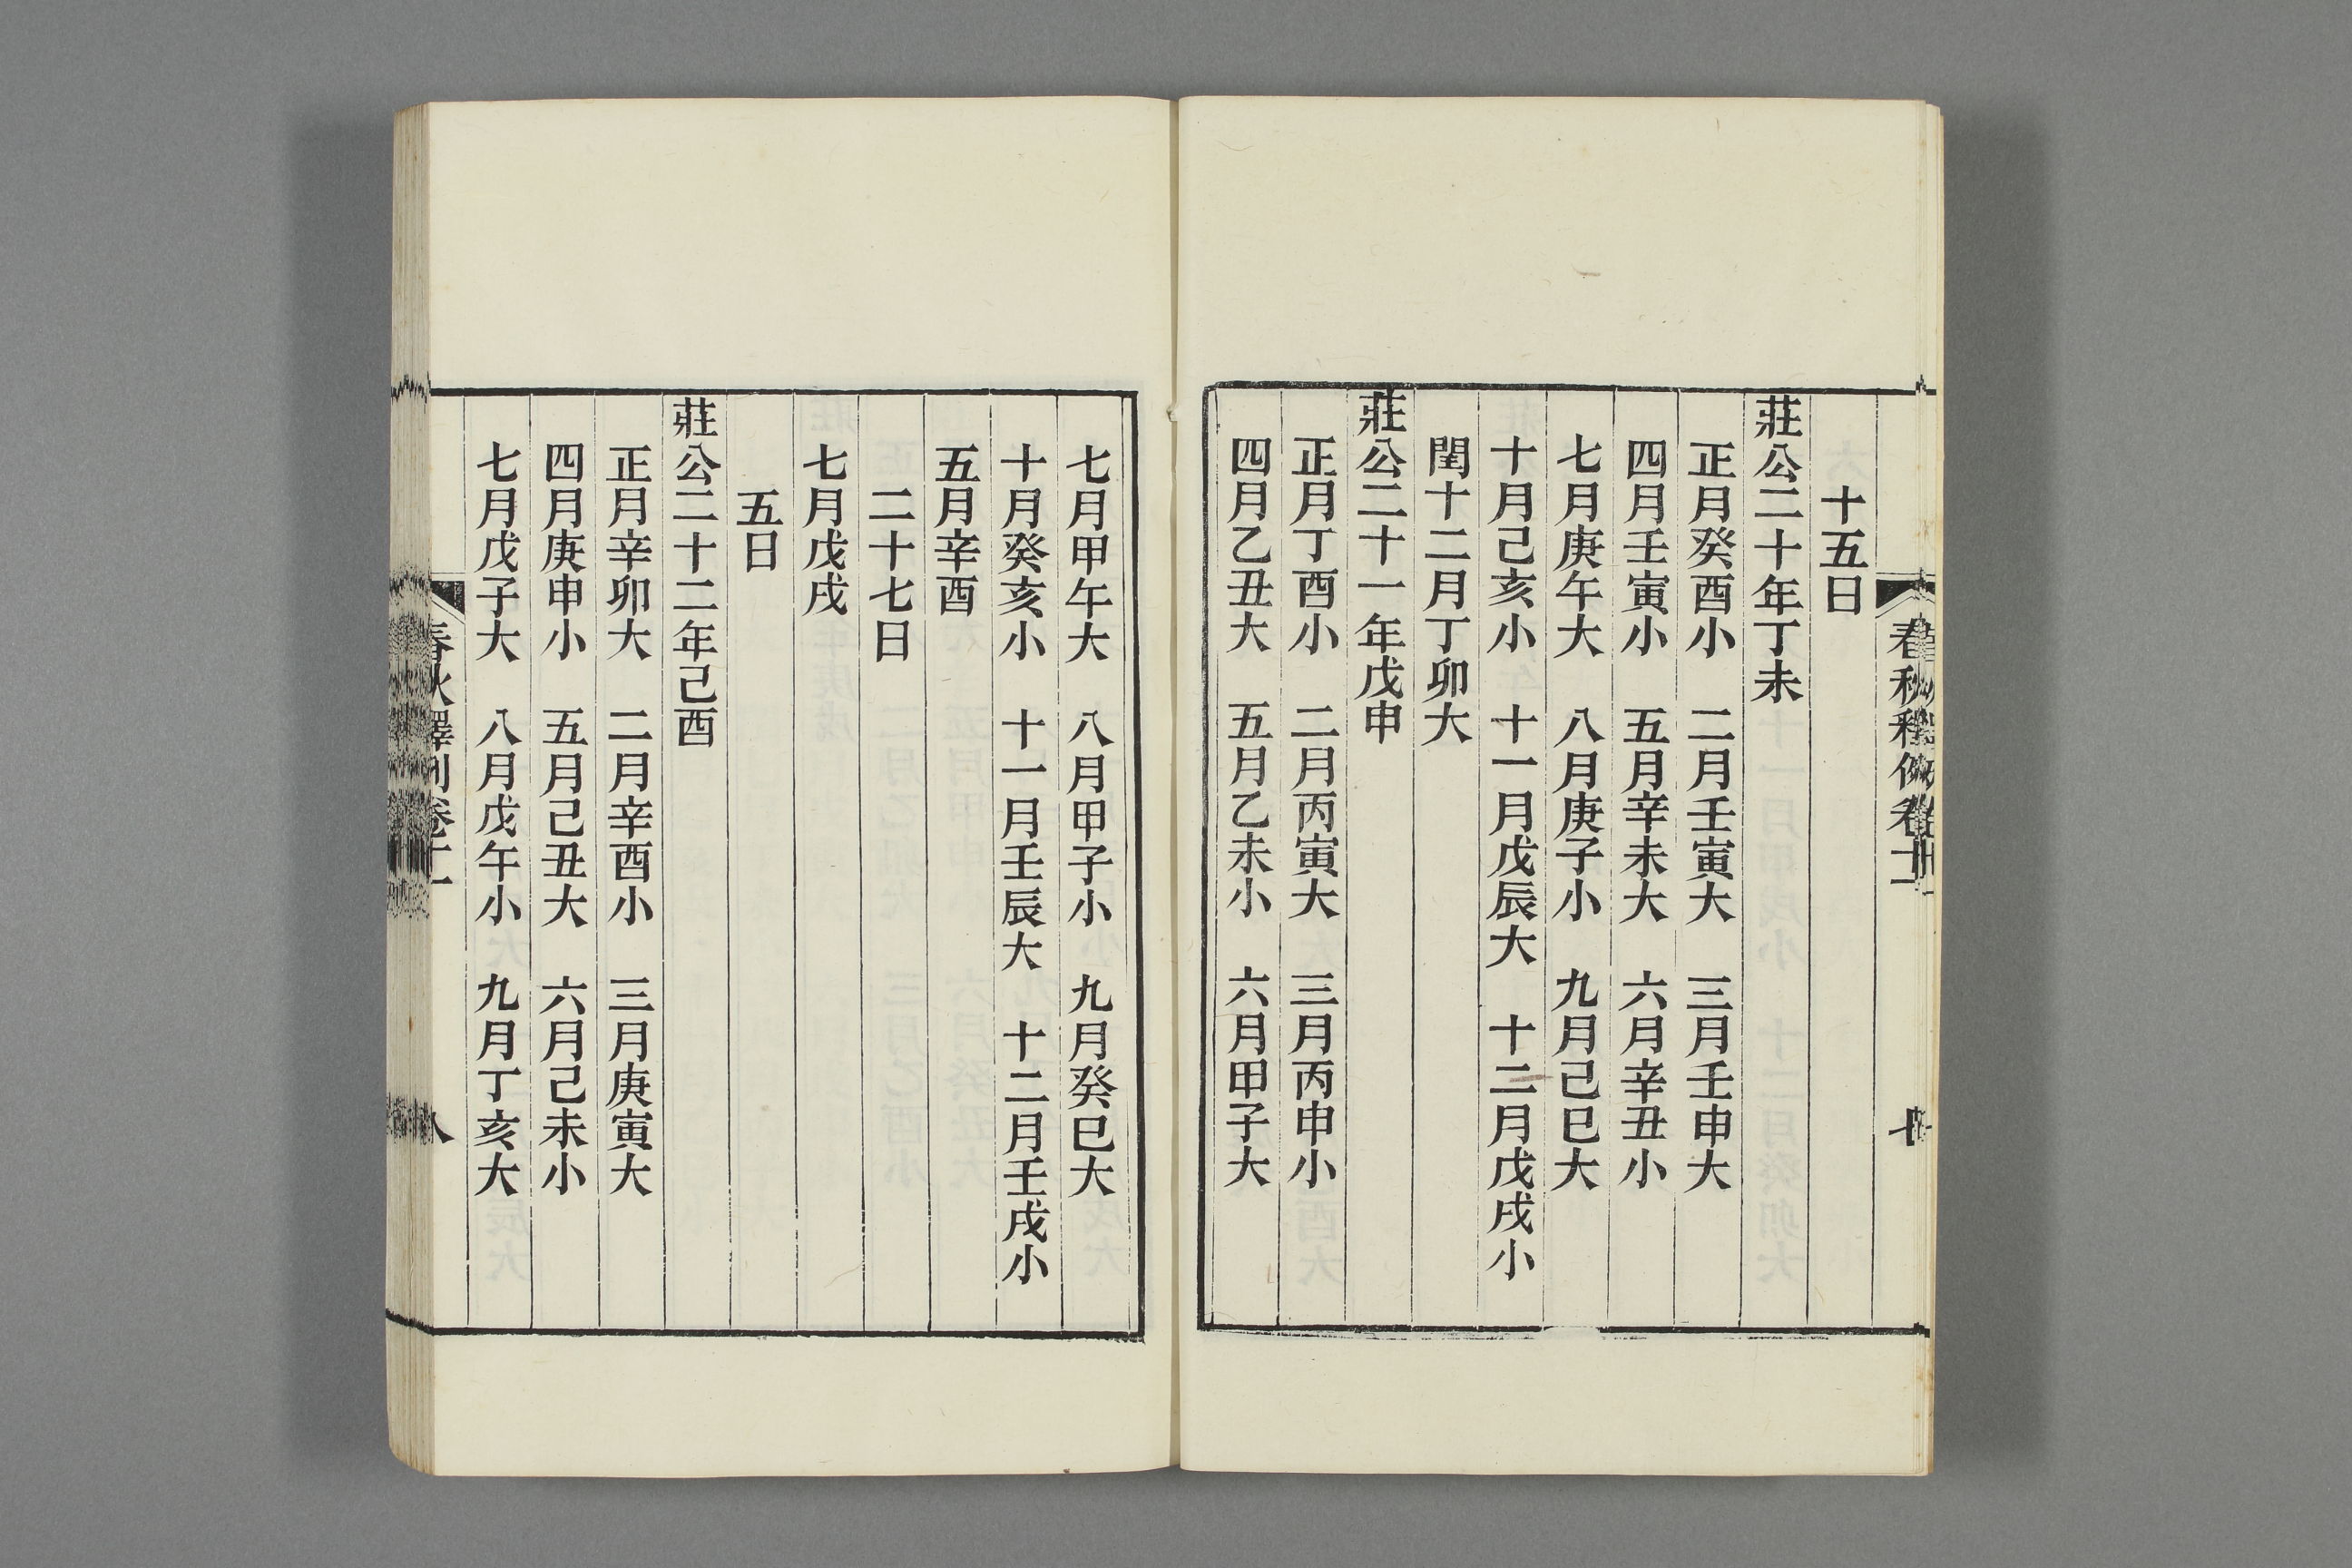 十五日
莊公二十年丁未
正月癸酉小　二月壬寅大　三月壬申大
四月壬寅小　五月辛未大　六月辛丑小
七月庚午大　八月庚子小　九月己巳大
十月己亥小　十一月戊辰大　十二月戊戌小
閏十二月丁卯大
莊公二十一年戊申
正月丁酉小　二月丙寅大　三月丙申小
四月乙丑大　五月乙未小　六月甲子大
七月甲午大　八月甲子小　九月癸巳大
十月癸亥小　十一月壬辰大　十二月壬戌小
五月辛酉
二十七日
七月戊戌
五日
莊公二十二年己酉
正月辛卯大　二月辛酉小　三月庚寅大
四月庚申小　五月己丑大　六月己未小
七月戊子大　八月戊午小　九月丁亥大
春秋釋例卷十一
八